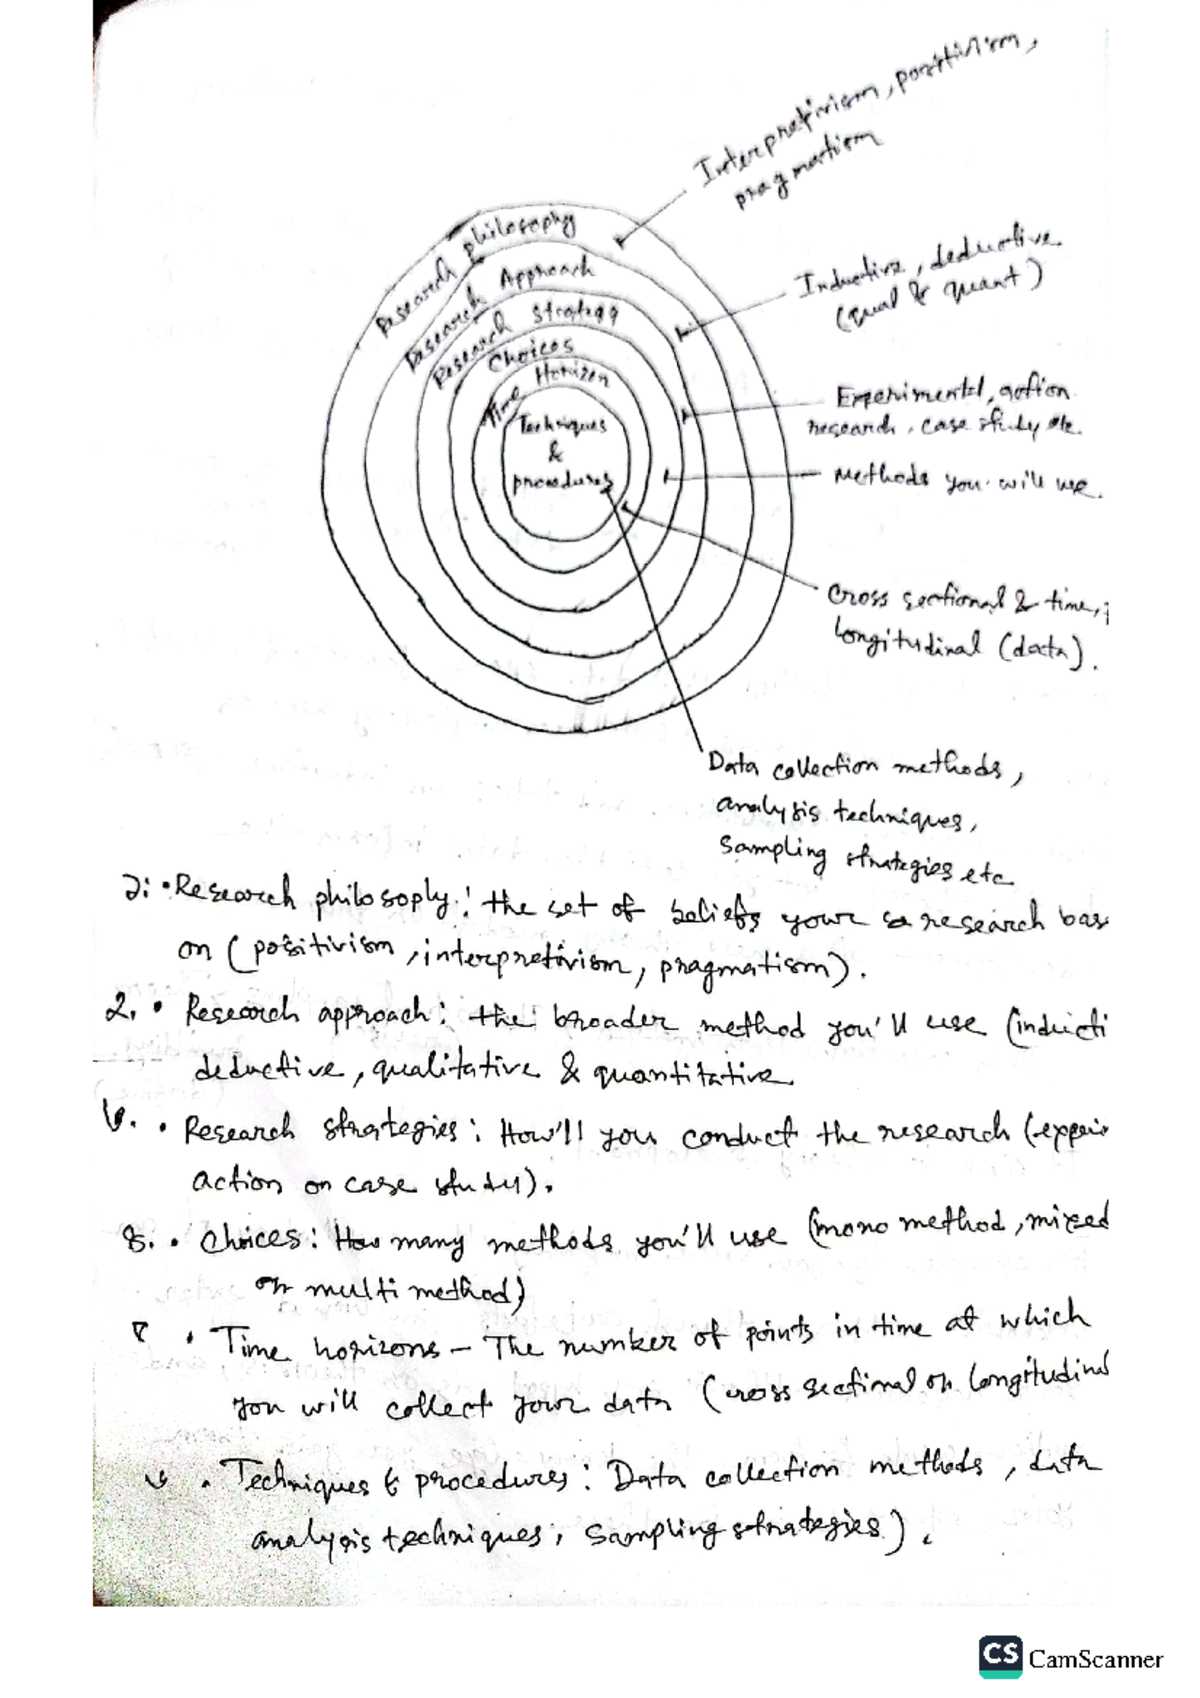 Interpretivism, positivism,
pragmatism
Research philosophy
Research Approach
Research Strategy
Choices
Time Horizon
Techniques
&
procedures
Inductive, deductive.
(qual & quant)
Experimental, action
research, case study etc.
Methods you will use.
Cross sectional & time,
longitudinal (data).
Data collection methods,
analysis techniques,
Sampling strategies etc
• Research philosoply: the set of beliefs your research bas
on (positivism, interpretivism, pragmatism).
2. • Research approach: the broader method you'll use (inducti
deductive, qualitative & quantitative.
• Research strategies: How'll you conduct the research (experi
action or case study).
• Choices: How many methods you'll use (mono method, mixed
or multi method)
• Time horizons – The number of points in time at which
you will collect your data (cross sectional or longitudinal
• Techniques & procedures: Data collection methods, data
analysis techniques, sampling strategies).
CS CamScanner